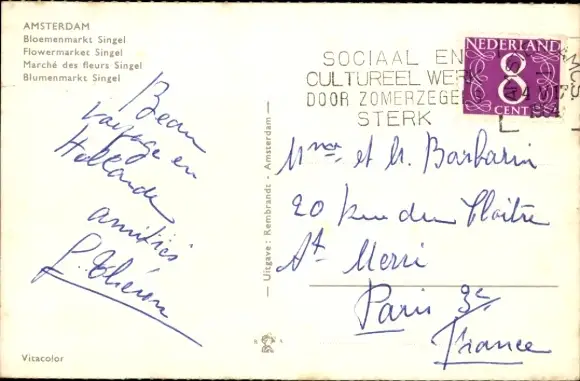 AMSTERDAM
Bloemenmarkt Singel
Flowermarket Singel
Marché des fleurs Singel
Blumenmarkt Singel
Beau
voyage en
Hollande
amitiés
SOCIAAL EN
CULTUREEL WERK
DOOR ZOMERZEGELS
STERK
NEDERLAND
8
CENT
1964
Mme et M. Barbarin
20 Rue du Cloître
St Merri
Paris 3e
France
Uitgave: Rembrandt - Amsterdam
Vitacolor